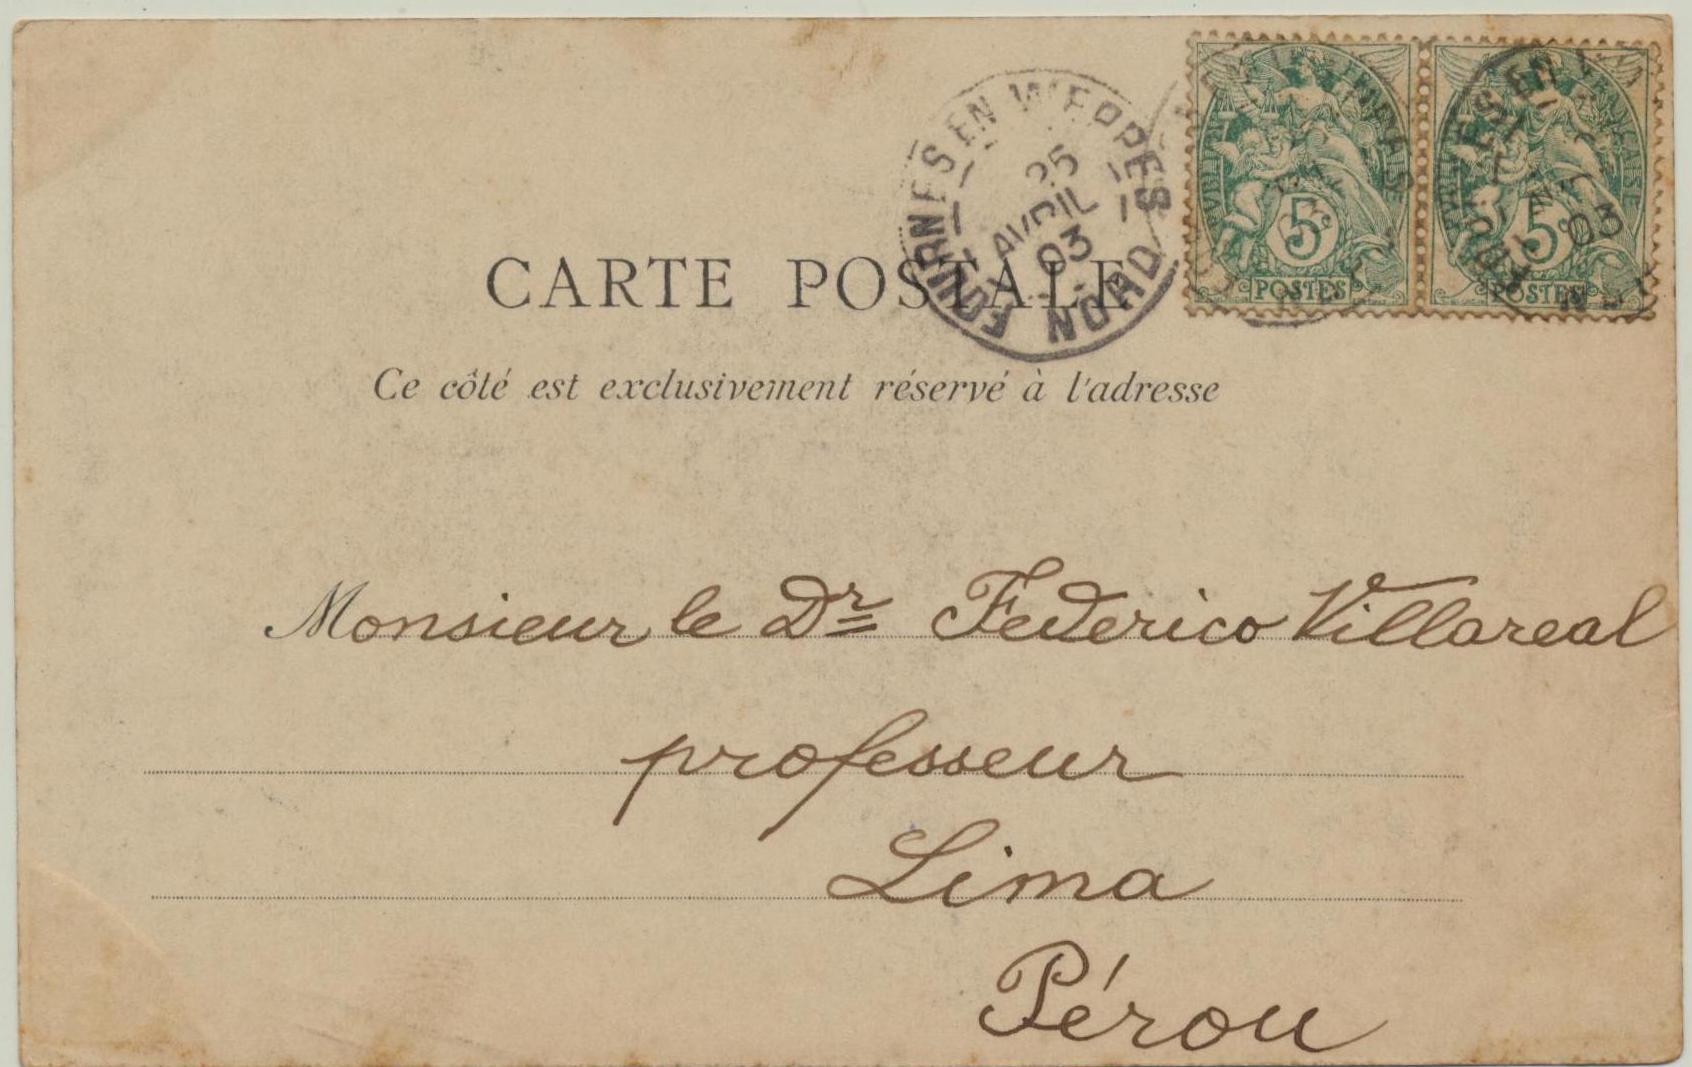 CARTE POSTALE
FOURNES EN WEPPES
25
AVRIL
03
NORD
5
POSTES
5
POSTES
03
Ce côté est exclusivement réservé à l'adresse
Monsieur le Dr Federico Villareal
professeur
Lima
Pérou